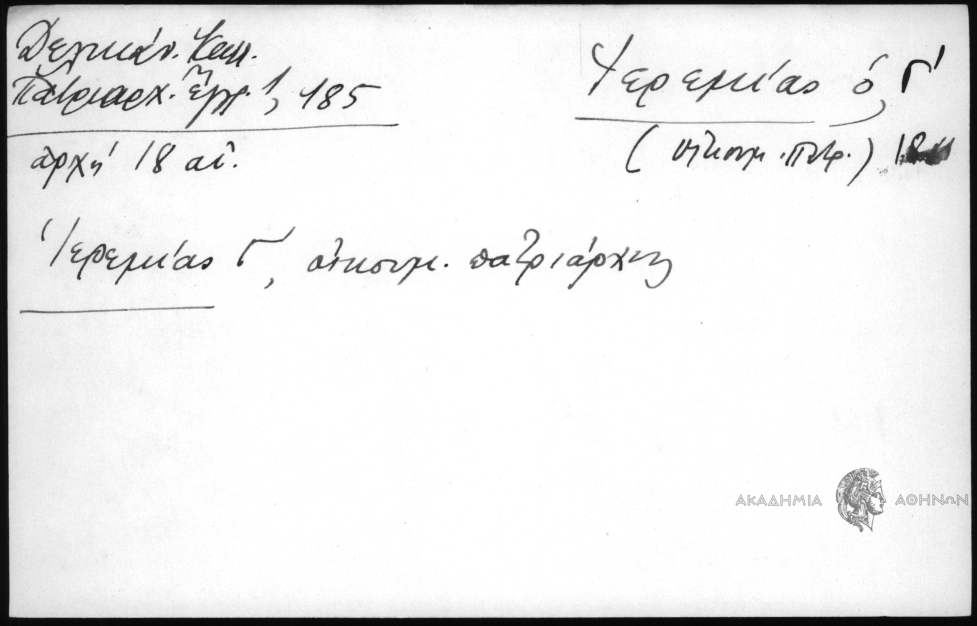 Δελικάν. Καλ.
Πατριαρχ. Ἔγγρ. 1, 485
ἀρχή 18 αἰ.
Ἱερεμίας ὁ Γ'
(οἰκουμ. πατρ.) 18
Ἱερεμίας Γ', οἰκουμ. πατριάρχης
ΑΚΑΔΗΜΙΑ ΑΘΗΝΩΝ